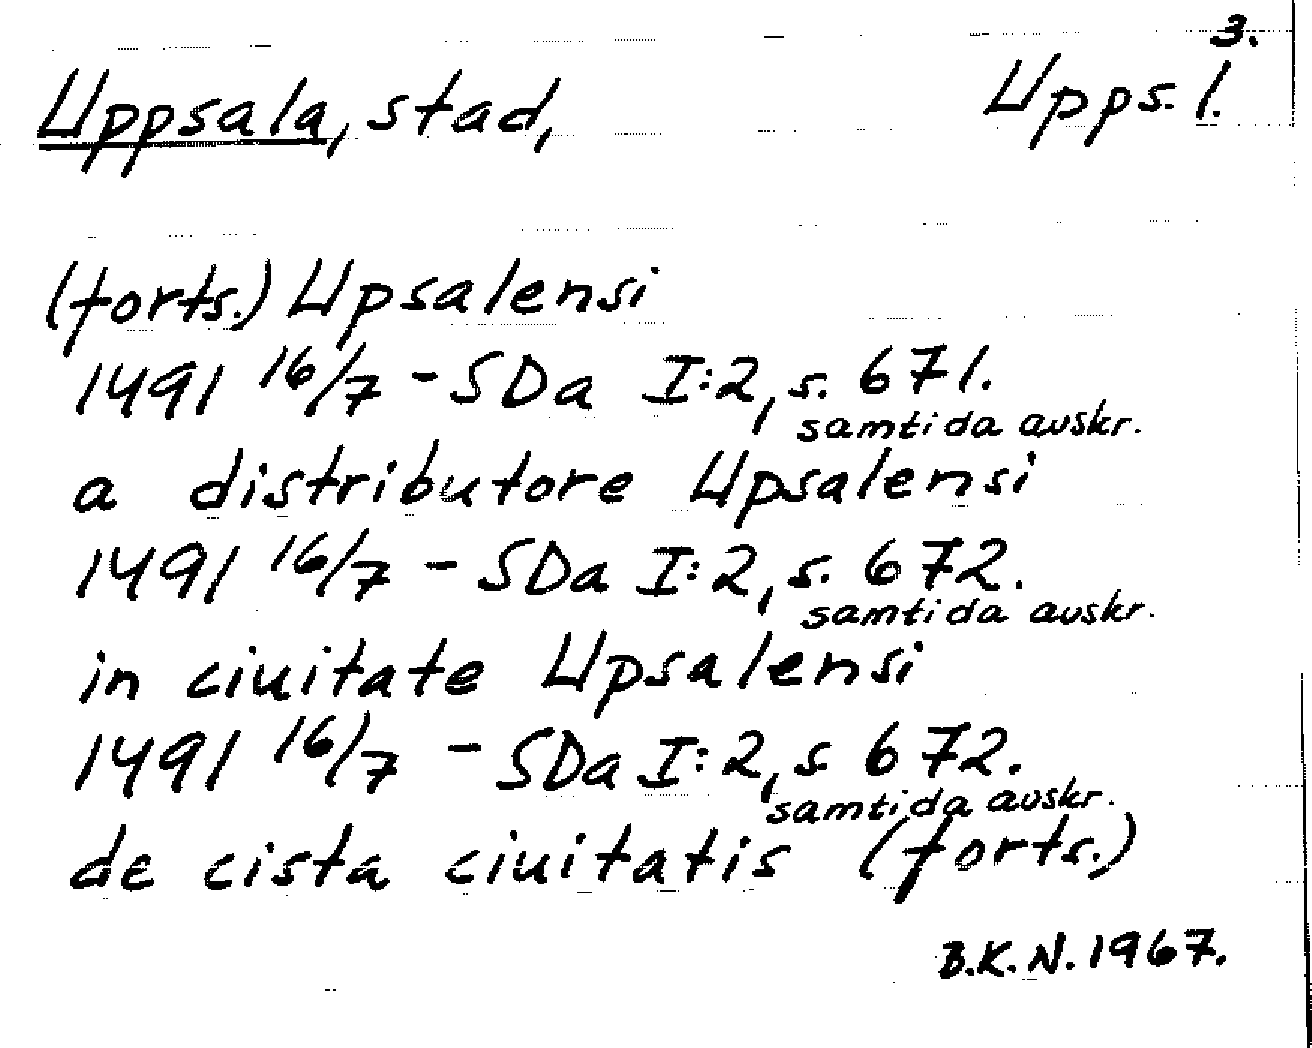 3.
Uppsala, stad, Upps. l.
(forts.) Upsalensi
1491 16/7 - SDa I:2, s. 671.
samtida avskr.
a distributore Upsalensi
1491 16/7 - SDa I:2, s. 672.
samtida avskr.
in ciuitate Upsalensi
1491 16/7 - SDa I:2, s 672.
samtida avskr.
de cista ciuitatis (forts.)
B.K.N. 1967.